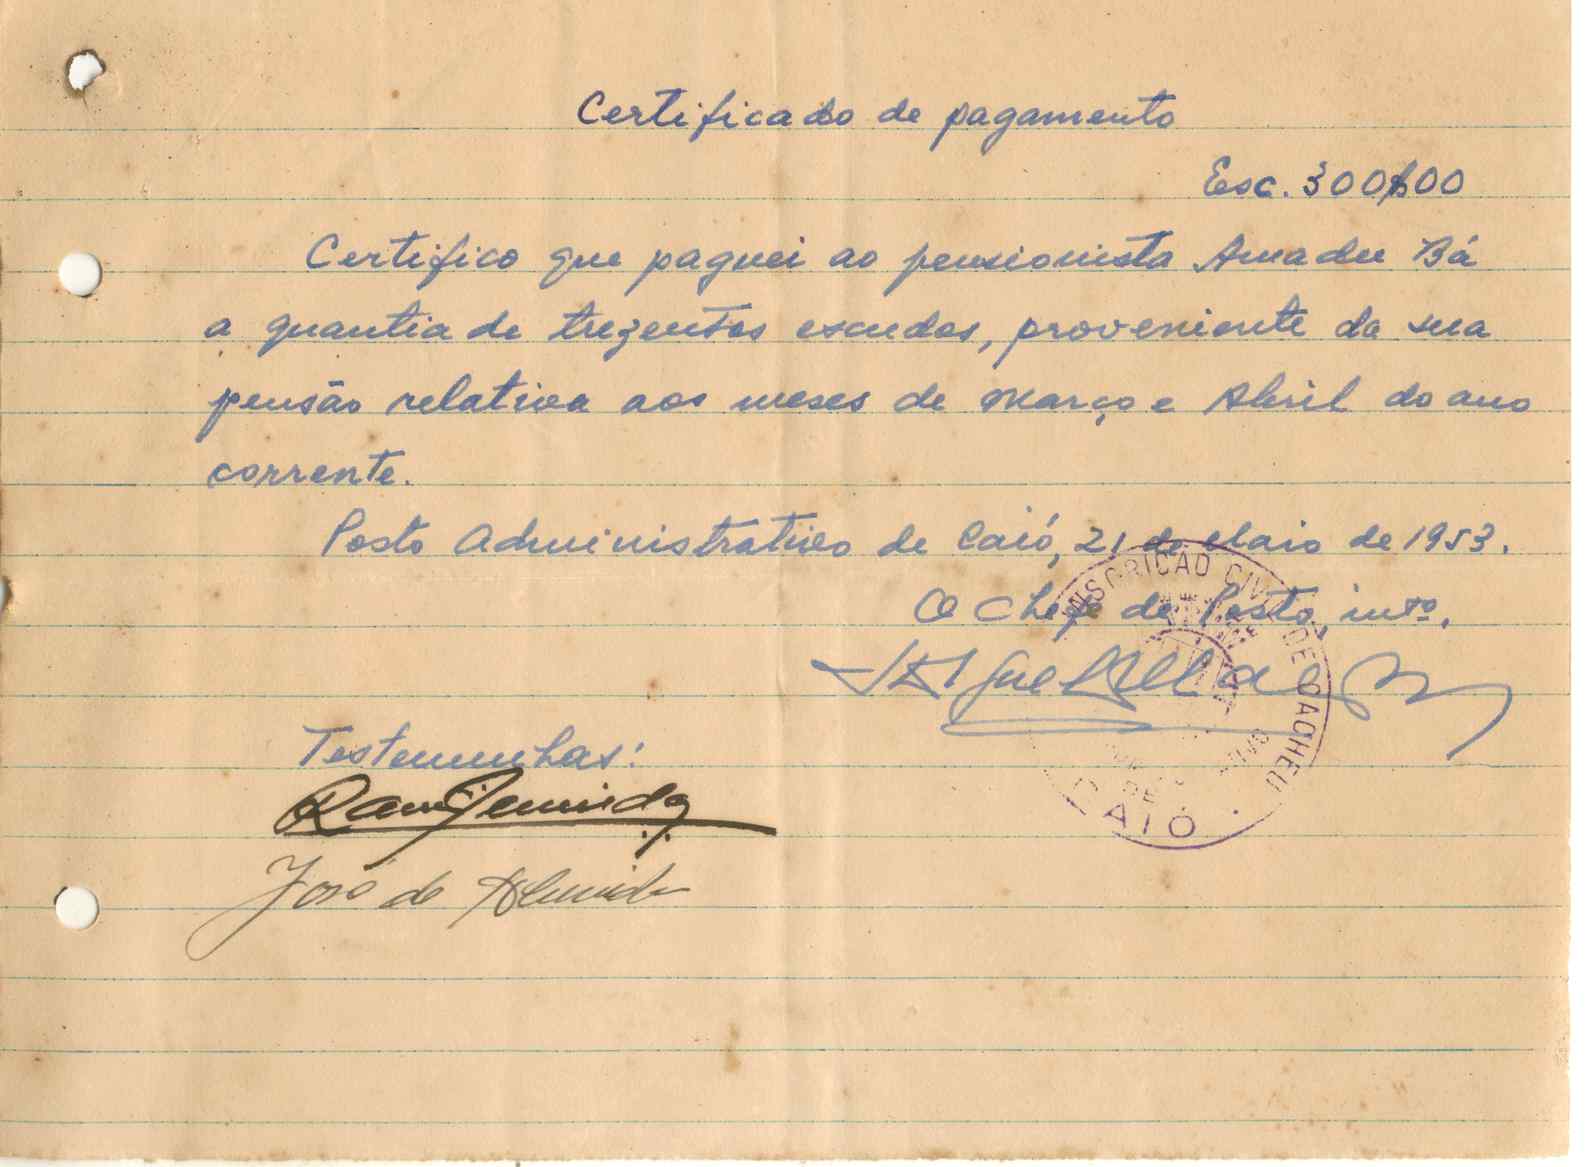 Certificado de pagamento
Esc. 300$00
Certifico que paguei ao pensionista Amadu Bá
a quantia de trezentos escudos, proveniente da sua
pensão relativa aos meses de Março e Abril do ano
corrente.
Posto Administrativo de Caió, 21 de Maio de 1953.
O Chefe de Posto, intº.
Testemunhas:
José de Almeida
NSCRIÇÃO CIVIL DE CACHEU
CAIÓ